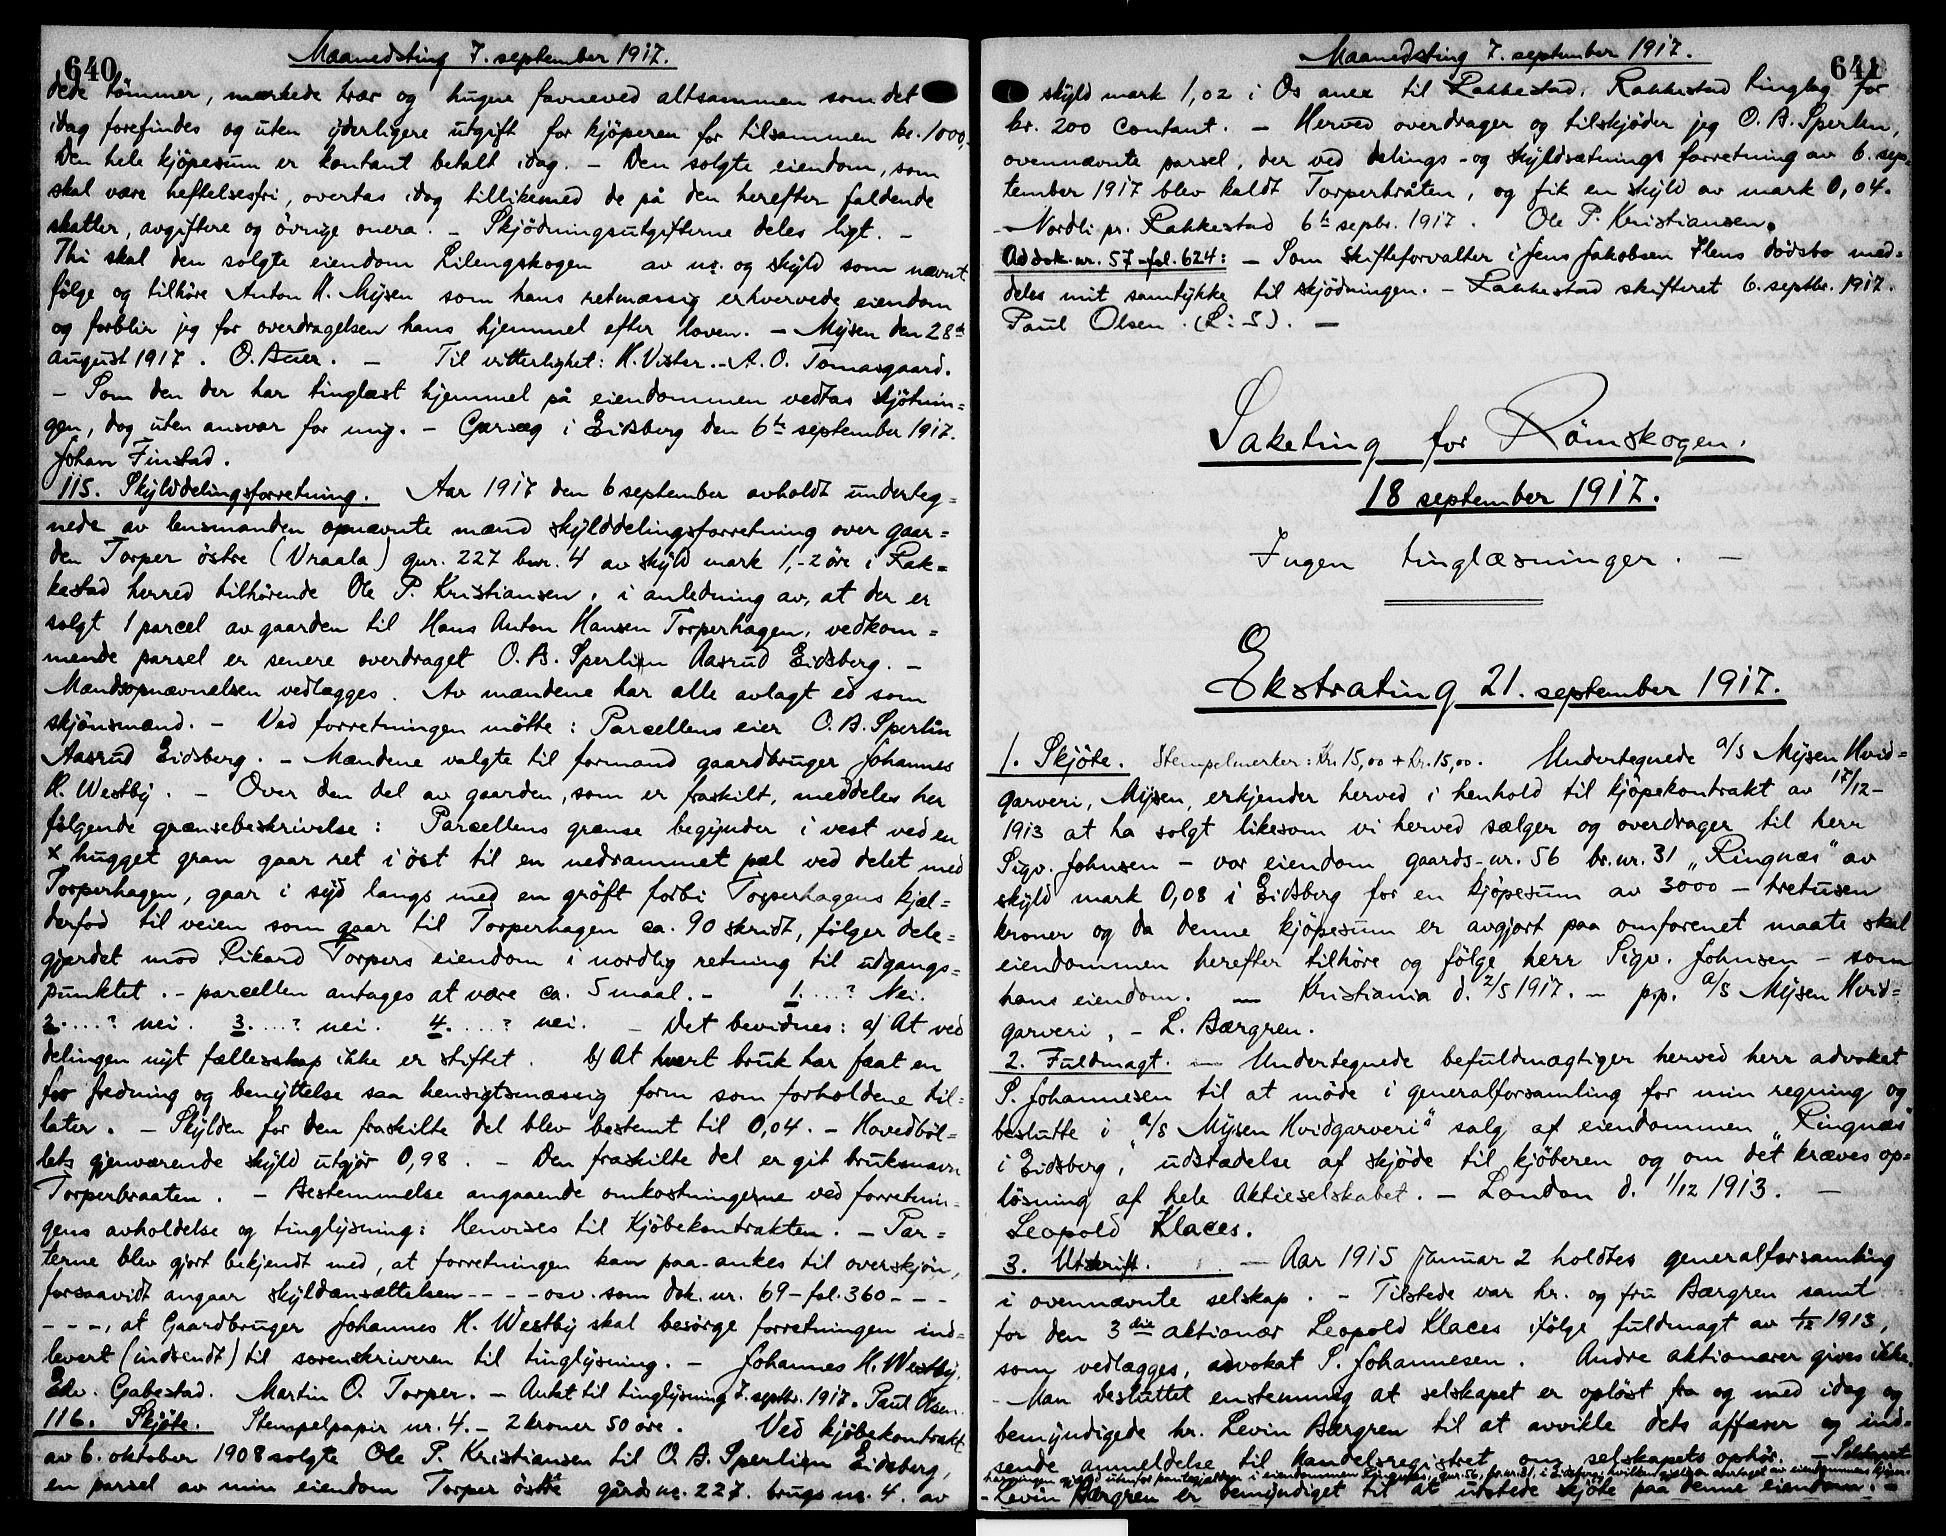 640
Maanedsting 7. september 1917.
dede tömmer, merkede trær og hugne favneved altsammen som det
idag forefindes og uten yderligere utgift for kjöperen for tilsammen kr. 1000,-
Den hele kjöpesum er kontant betalt idag. – Den solgte eiendom, som
skal være heftelsesfri, overtas idag tillikemed de på den herefter faldende
skatter, avgiftere og övrige onera. – Skjödningsutgifterne deles likt. –
Thi skal den solgte eiendom Lilengskogen av nr. og skyld som nævnt
fölge og tilhöre Anton H. Mysen som hans retmæssig erhvervede eiendom
og forblir jeg for overdragelsen hans hjemmel efter loven. – Mysen den 28de
august 1917. O. Auer. – Til vitterlighet: H. Vister. – A. O. Tomasgaard.
– Som den der har tinglæst hjemmel på eiendommen vedtas skjötnin=
gen, dog uten ansvar for mig. – Garseg i Eidsberg den 6te september 1917.
Johan Finstad.
115. Skylddelingsforretning. Aar 1917 den 6 september avholdt underteg=
nede av lensmanden opnævnte mænd skylddelingsforretning over gaar=
den Torper östre (Vraala) gnr. 227 bnr. 4 av skyld mark 1,-2 öre i Rak=
kestad herred tilhörende Ole P. Kristiansen, i anledning av, at der er
solgt 1 parcel av gaarden til Hans Anton Hansen Torperhagen, vedkom=
mende parsel er senere overdraget O. B. Sperlin Aasrud Eidsberg. –
Mandsopnævnelsen vedlægges. Av mændene har alle avlagt ed som
skjönsmænd. – Ved forretningen mötte: Parcellens eier O. B. Sperlin
Aasrud Eidsberg. – Mændene valgte til formand gaardbruger Johannes
H. Westby. – Over den del av gaarden, som er fraskilt, meddeles her
fölgende grænsebeskrivelse: Parcellens grænse begynder i vest ved en
x hugget gran gaar ret i öst til en nedrammet pæl ved delet med
Torperhagen, gaar i syd langs med en gröft forbi Torperhagens kjæl=
derfod til veien som gaar til Torperhagen ca. 90 skridt, fölger dele=
gjerdet mod Rikard Torpers eiendom i nordlig retning til udgangs=
punktet. – parcellen antages at være ca. 5 maal. – 1....? Nei.
2....? nei. 3....? nei. 4....? nei. – Det bevidnes: a) At ved
delingen nyt fællesskap ikke er stiftet. b) At hvert bruk har faat en
for fredning og benyttelse saa hensigtsmæssig form som forholdene til=
later. – Skylden for den fraskilte del blev bestemt til 0,04. – Hovedböl=
lets gjenværende skyld utgjör 0,98. – Den fraskilte del er git bruksnavn
Torperbraaten. – Bestemmelse angaaende omkostningerne ved forretnin=
gens avholdelse og tinglysning: Henvises til Kjöbekontrakten. – Par=
terne blev gjort bekjendt med, at forretningen kan paa-ankes til overskjön,
forsaavidt angaar skyldansættelsen - - - - osv. som dok. nr. 69 – fol. 360 - - -
- - -, at Gaardbruger Johannes H. Westby skal besörge forretningen ind=
levert (indsendt) til sorenskriveren til tinglysning. – Johannes H. Westby.
Edv. Gabestad. Martin O. Torper. – Antat til tinglysning 7. septbr. 1917. Paul Olsen.
116. Skjöte. Stempelpapir nr. 4. – 2 kroner 50 öre. Ved kjöbekontrakt
av 6. oktober 1908 solgte Ole P. Kristiansen til O. B. Sperlin Eidsberg,
en parsel av min eiendom Torper östre gårds nr. 227. brugs nr. 4. av
641
Maanedsting 7. september 1917.
skyld mark 1,02 i Os anex til Rakkestad. Rakkestad tinglag for
kr. 200 contant. – Herved overdrager og tilskjöder jeg O. B. Sperlin,
ovennævnte parsel, der ved delings- og skyldsætnings forretning av 6. sep=
tember 1917 blev kaldt Torperbråten, og fik en skyld av mark 0,04.
– Nordli pr. Rakkestad 6te sepbr. 1917. Ole P. Kristiansen.
Ad dok. nr. 57 – fol. 624: – Som skifteforvalter i Jens Jakobsen Hens dödsbo med=
deles mit samtykke til skjödningen. – Rakkestad skifteret 6. septbr. 1917.
Paul Olsen. (L:S). –
Saketing for Römskogen.
18 september 1917.
Ingen tinglæsninger. –
Ekstrating 21. september 1917.
1. Skjöte. Stempelmerker: Kr. 15,00 + kr. 15,00. Undertegnede a/s Mysen Hvid=
garveri, Mysen, erkjender herved i henhold til kjöpekontrakt av 17/12-
1913 at ha solgt likesom vi herved sælger og overdrager til herr
Sigv. Johnsen – vor eiendom gaards-nr. 56 br. nr. 31 „Ringnæs" av
skyld mark 0,08 i Eidsberg for en kjöpesum av 3000 – tretusen
kroner og da denne kjöpesum er avgjort paa omforenet maate skal
eiendommen herefter tilhöre og fölge herr Sigv. Johnsen – som
hans eiendom. – Kristiania d. 2/5 1917. – p.p. a/s Mysen Hvid=
garveri, – L. Bærgren.
2. Fuldmagt. – Undertegnede befuldmægtiger herved herr advokat
S. Johannesen til at möde i generalforsamling for min regning og
beslutte i „a/s Mysen Hvidgarveri" salg af eiendommen „Ringnæs"
i Eidsberg, udstædelse af skjöde til kjöberen og om det kræves op=
lösning af hele aktieselskabet. – London d. 1/12 1913. –
Leopold Klaces.
3. Utskrift. – Aar 1915 Januar 2 holdtes generalforsamling
i ovennævnte selskap. – Tilstede var hr. og fru Bærgren samt
for den 3die aktionær Leopold Klaces ifölge fuldmagt av 1/12 1913,
som vedlægges, advokat S. Johannesen. Andre aktionærer gives ikke.
– Man besluttet enstemmig at selskapet er oplöst fra og med idag og
bemyndigede hr. Levin Bærgren til at avvikle dets affærer og ind=
sende anmeldelse til handelsregistret om selskapets ophör. – Selskapet
har ingen gjæld utenfor pantegjælden i eiendommen Ringnæs, gnr. 56, br. nr. 31, i Eidsberg, hvilken gjæld er overtaget av eiendommens kjöper.
– Levin Bærgren er bemyndiget til at utstede skjöte paa denne eiendom. –